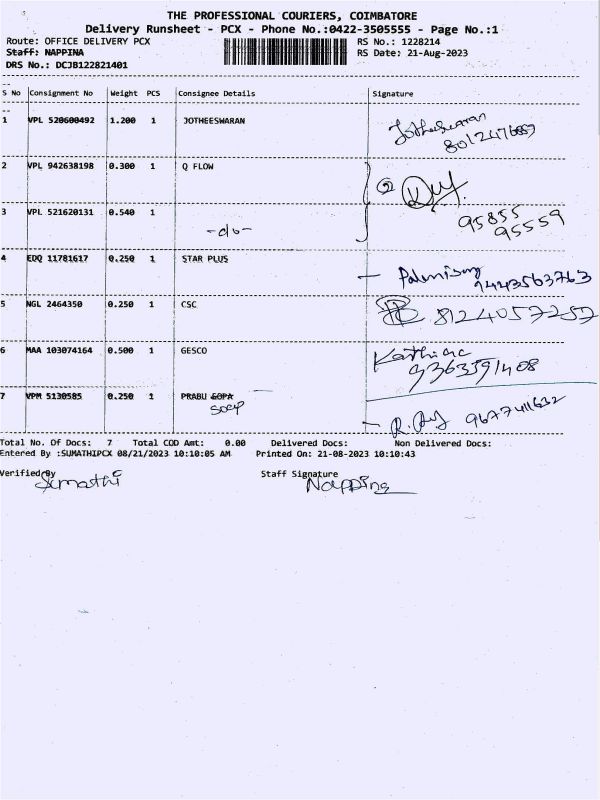 THE PROFESSIONAL COURIERS, COIMBATORE
Delivery Runsheet - PCX - Phone No.:0422-3505555 - Page No.:1
Route: OFFICE DELIVERY PCX RS No.: 1228214
Staff: NAPPINA RS Date: 21-Aug-2023
DRS No.: DCJB122821401
S No Consignment No Weight PCS Consignee Details Signature
1 VPL 520600492 1.200 1 JOTHEESWARAN Jotheeswaran
2 VPL 942638198 0.300 1 Q FLOW
95855
95559
3 VPL 521620131 0.540 1 -do-
4 EDQ 11781617 0.250 1 STAR PLUS
9443563763
5 NGL 2464350 0.250 1 CSC 8124057257
6 MAA 103074164 0.500 1 GESCO
9363391408
7 VPM 5130585 0.250 1 PRABU GOPA
soap
9677411632
Total No. Of Docs: 7 Total COD Amt: 0.00 Delivered Docs: Non Delivered Docs:
Entered By :SUMATHIPCX 08/21/2023 10:10:05 AM Printed On: 21-08-2023 10:10:43
Verified By Sumathi Staff Signature Nappina